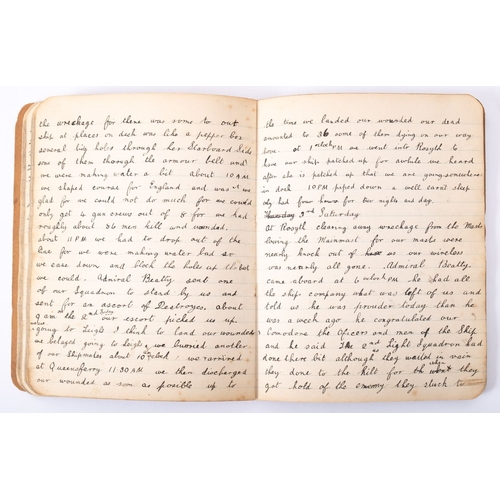 the wreckage for there was some to out
ship at places on deck was like a pepper box
several big holes through her Starboard Side
som of them thorugh the armour belt and
we were making water a bit about 10 AM
we shaped course for England and was we
glad for we could not do much for we could
only get 4 gun crews out of 8 for we had
roughly about 36 men kill and wounded.
about 11 PM we had to drop out of the
line for we were making water bad so
we ease down and block the holes up the best
we could. Admiral Beatty sent one
of our Squadron to stand by us and
sent for an ascort of Destroyes. about
9 am the 2nd our escort picked us up
going to Leigh I think to land our wounded
we belayed going to Leigh, we burried another
of our Shipmates about 10 oclock, we arrived
at Queensferry 11.30 AM we then discharged
our wounded as soon as posible up to
the time we landed our wounded our dead
amounted to 36 some of them dying on our way
home. at 1 oclock PM we went into Rosyth to
have our ship patched up for awhile we heard
after she is patched up that we are going somewhere
in dock 10 PM piped down a well earnt sleep
only had four hours for two nights and day.
3rd Saturday.
At Rosyth clearing away wreckage from the Masts
lowing the Mainmast for our masts were
nearly knock out of as our wireless
was nearly all gone. Admiral Beatty.
came aboard at 6 oclock PM he had all
the ship company what was left of us and
told us he was prouder today than he
was a week ago he congratulated our
Comodore the Oficers and men of the Ship
and he said The 2nd Light Squadron had
done there bit although they waited in vain
they done to the hilt for when they
got hold of the enemy they stuck to